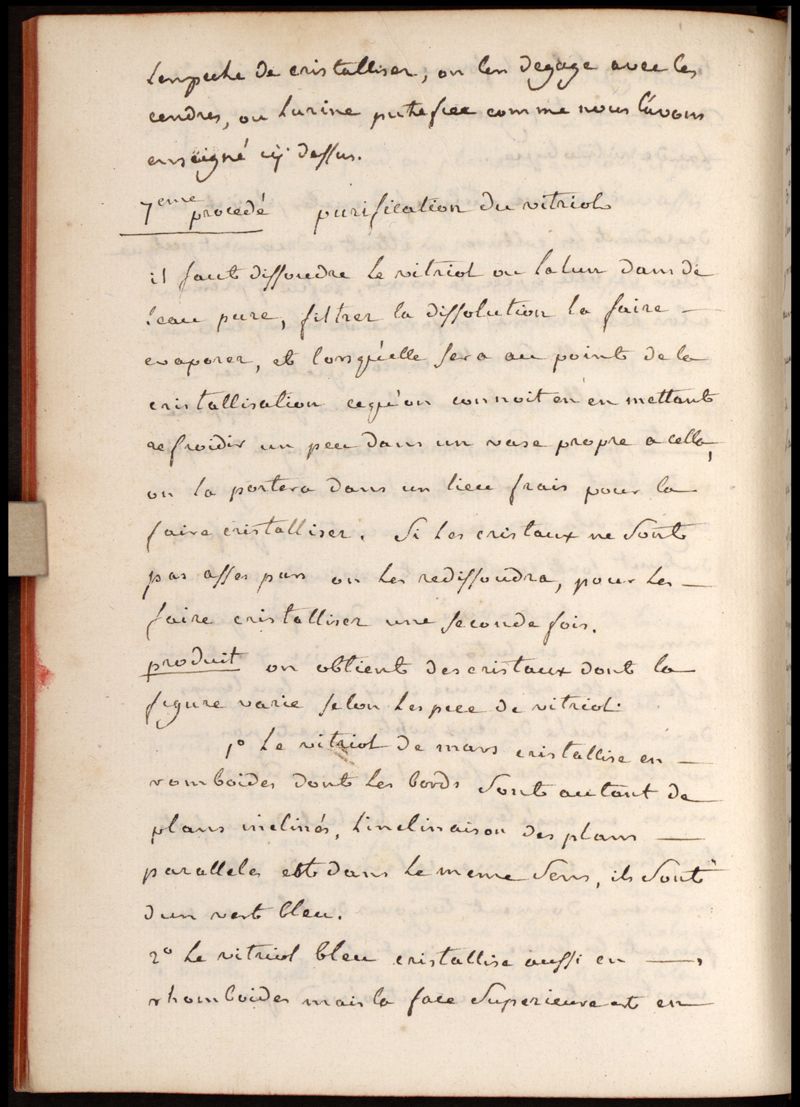 l'empeche de cristalliser, on l'en degage avec les
cendres, ou lurine putefiee comme nous l'avons
enseigné cy dessus.
7eme procedé purification du vitriol
il faut dissoudre le vitriol ou lalun dans de
l'eau pure, filtrer la dissolution la faire —
evaporer, et lorsqu'elle sera au point de la
cristallisation cequ'on connoit en en mettant
refroidir un peu dans un vase propre a cella,
on la portera dans un lieu frais pour la
faire cristalliser. Si les cristaux ne sont
pas asses purs on les redissoudra, pour les —
faire cristalliser une seconde fois.
produit on obtient des cristaux dont la
figure varie selon lespece de vitriol.
1º le vitriol de mars cristallise en —
romboides dont les bords sont autant de
plans inclinés, l'inclinaison des plans —
paralleles est dans le meme sens, ils sont
dun vert bleu.
2º le vitriol bleu cristallise aussi en —
rhomboides mais la face superieure est en